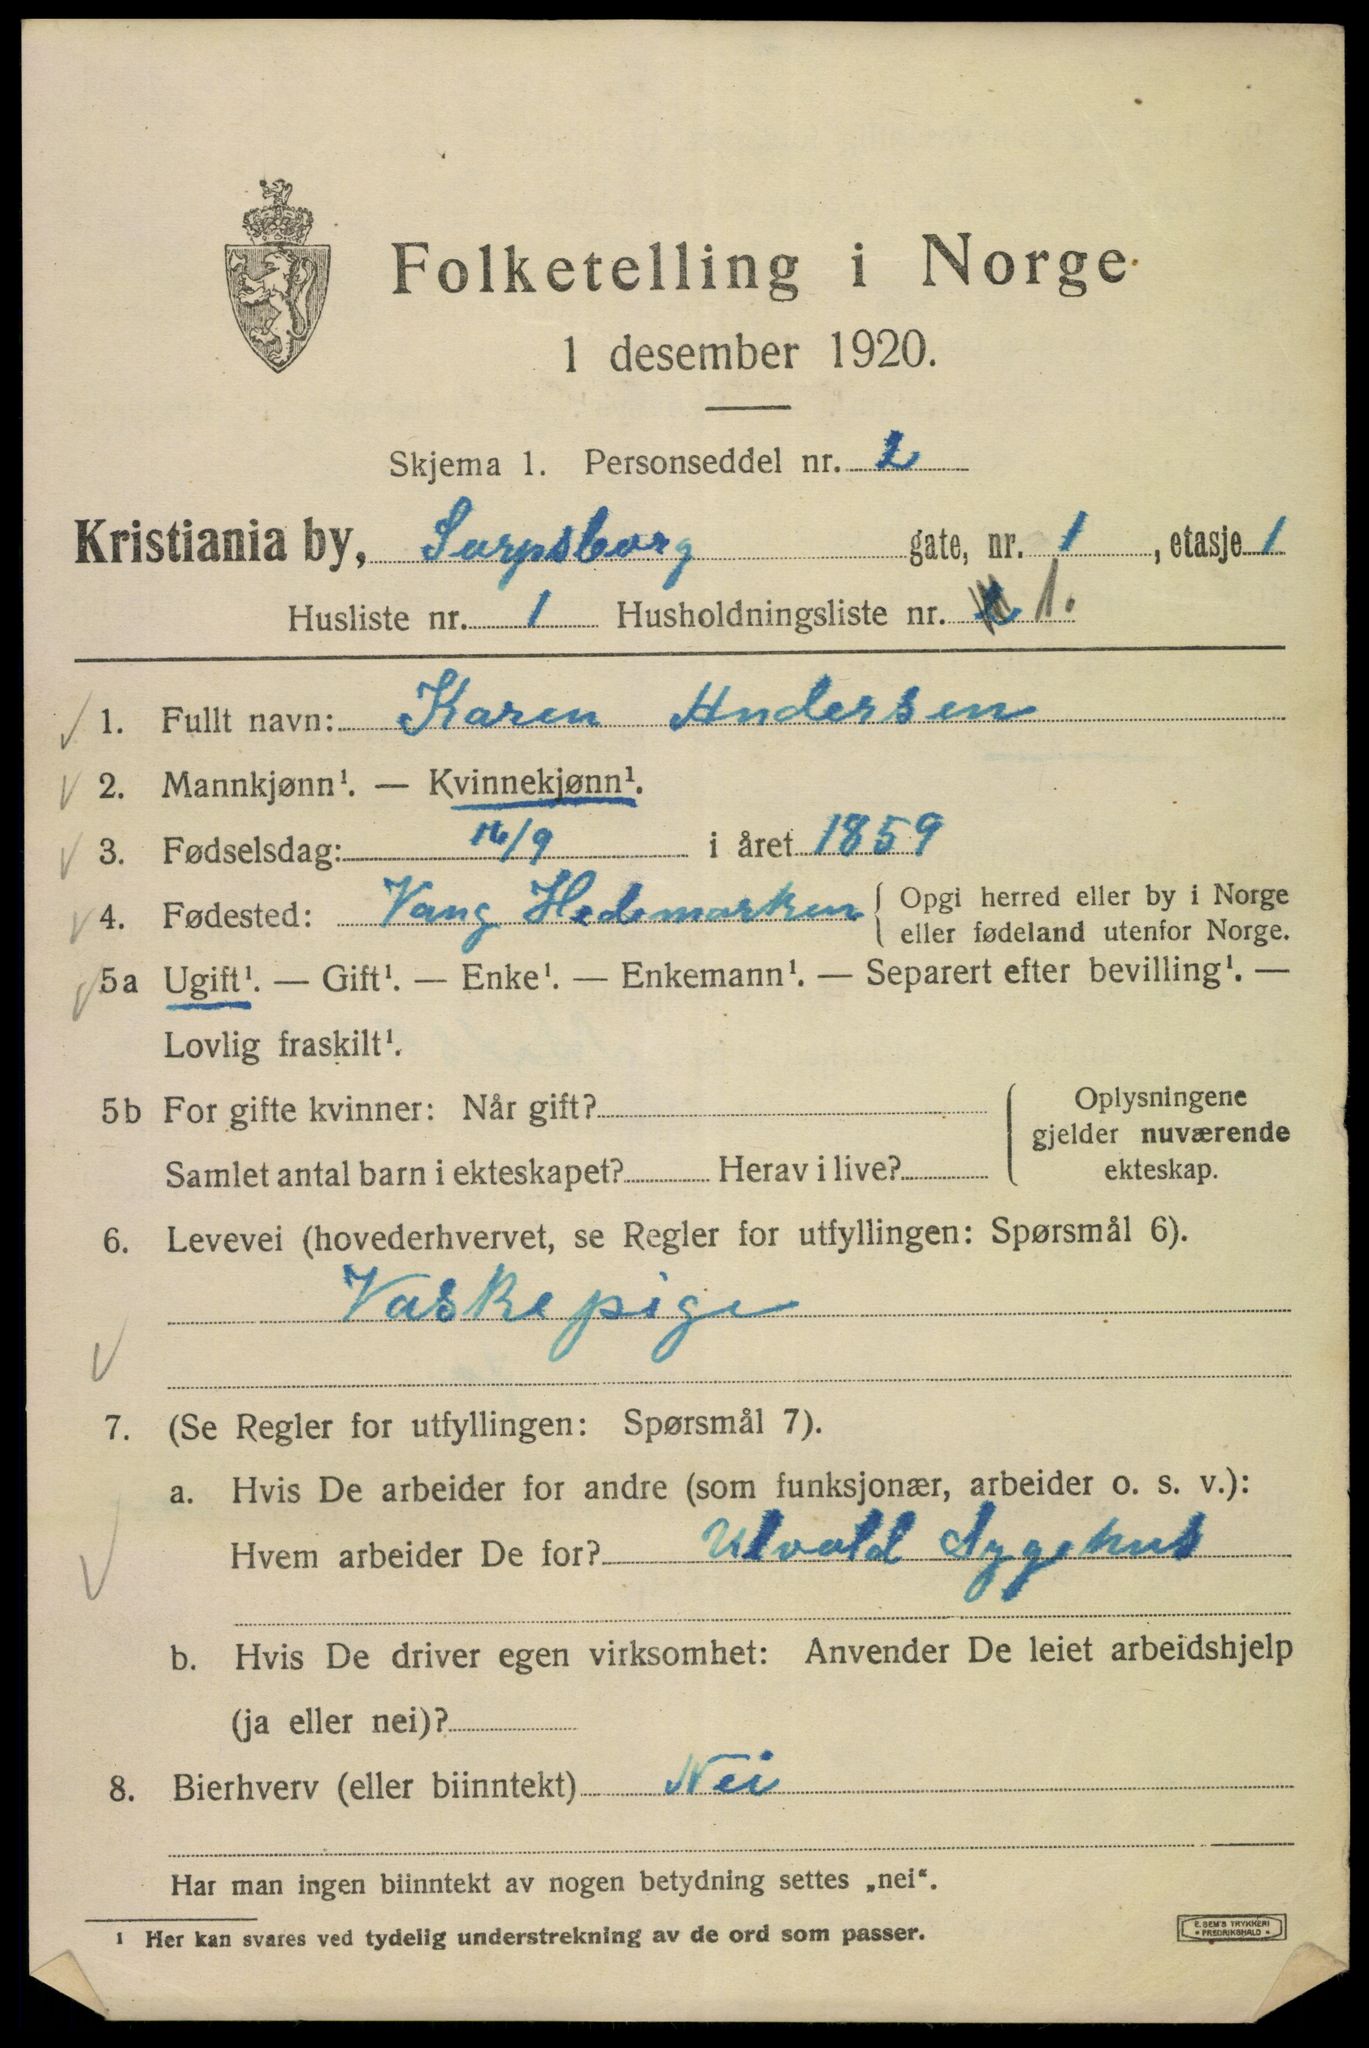 Folketelling i Norge
1 desember 1920.
Skjema 1. Personseddel nr. 2
Kristiania by, Sarpsborg gate, nr. 1, etasje 1
Husliste nr. 1 Husholdningsliste nr. 1.
1. Fullt navn: Karen Andersen
2. Mannkjønn¹. — Kvinnekjønn¹.
3. Fødselsdag: 16/9 i året 1859
4. Fødested: Vang Hedemarken { Opgi herred eller by i Norge
eller fødeland utenfor Norge.
5a Ugift¹. — Gift¹. — Enke¹. — Enkemann¹. — Separert efter bevilling¹. —
Lovlig fraskilt¹.
5b For gifte kvinner: Når gift?
Samlet antal barn i ekteskapet? Herav i live?
{ Oplysningene
gjelder nuværende
ekteskap.
6. Levevei (hovederhvervet, se Regler for utfyllingen: Spørsmål 6).
Vaskepige
7. (Se Regler for utfyllingen: Spørsmål 7).
a. Hvis De arbeider for andre (som funksjonær, arbeider o. s. v.):
Hvem arbeider De for? Ulvold Sygehus
b. Hvis De driver egen virksomhet: Anvender De leiet arbeidshjelp
(ja eller nei)?
8. Bierhverv (eller biinntekt) Nei
Har man ingen biinntekt av nogen betydning settes „nei“.
¹ Her kan svares ved tydelig understrekning av de ord som passer.
E. SEM'S TRYKKERI
• FREDRIKSHALD •